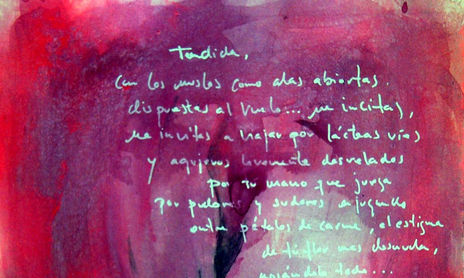 Tendida,
con los muslos como alas abiertas
dispuestas al vuelo... me incitas,
me invitas a viajar por lácteas vías
y agujeros levemente desvelados
por tu mano que juega
por y sudores enjugando
entre pétalos de carne, el estigma
de tu flor más desnuda,
todo...